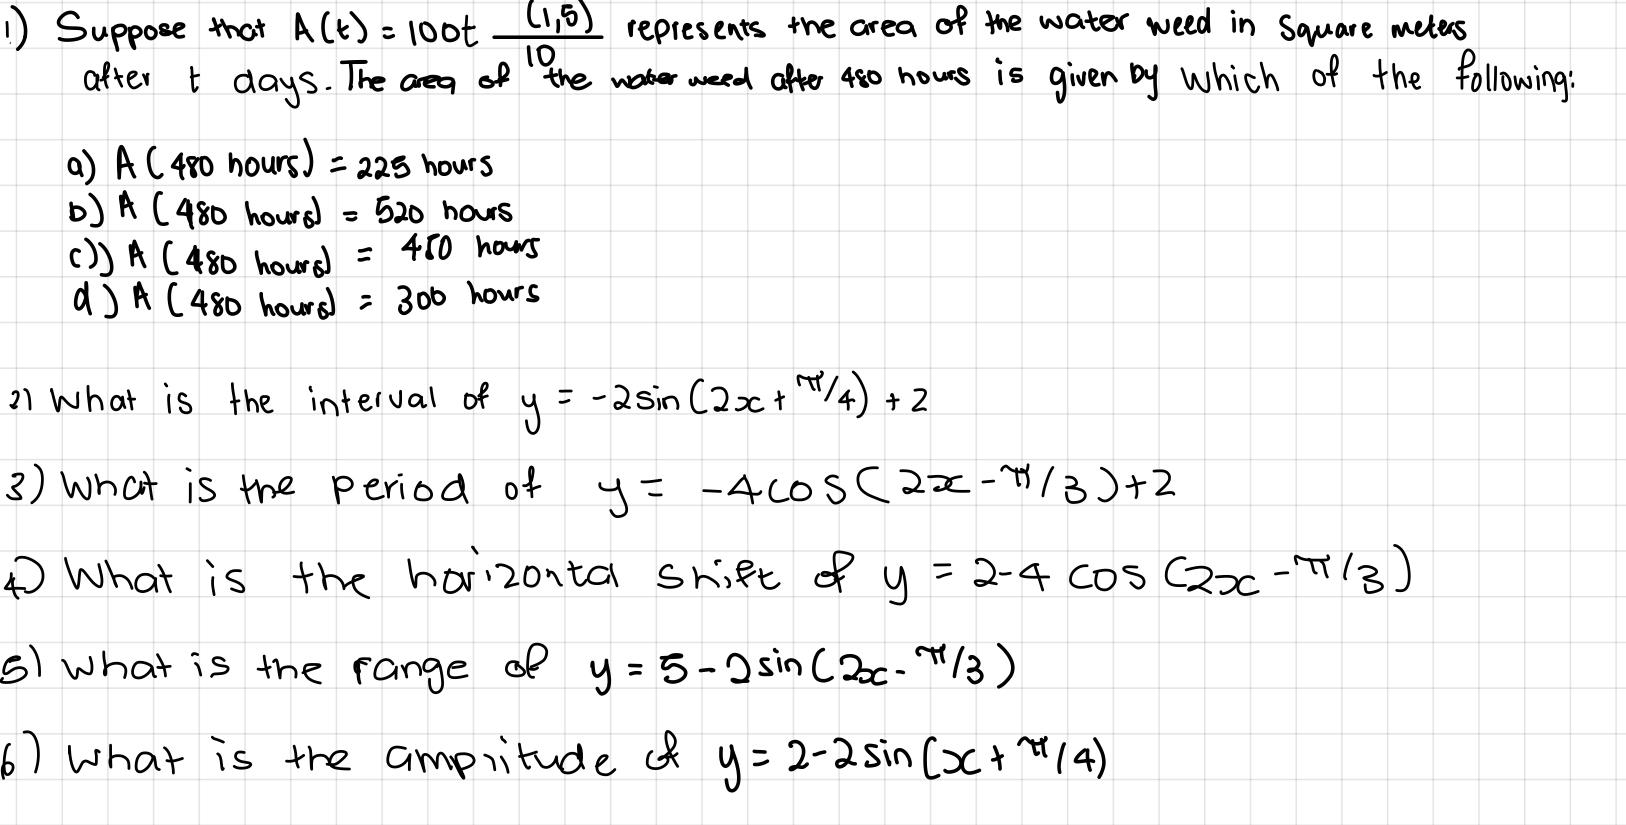 1) Suppose that A(t) = 100t (1,5)/10 represents the area of the water weed in square meters
after t days. The area of the water weed after 480 hours is given by which of the following:
a) A (480 hours) = 225 hours
b) A (480 hours) = 520 hours
c)) A (480 hours) = 450 hours
d) A (480 hours) = 300 hours
2) What is the interval of y = -2sin(2x + π/4) + 2
3) What is the period of y = -4cos(2x - π/3) + 2
4) What is the horizontal shift of y = 2-4 cos (2x - π/3)
5) What is the range of y = 5 - 2sin(2x - π/3)
6) What is the ampiitude of y = 2-2sin(x + π/4)